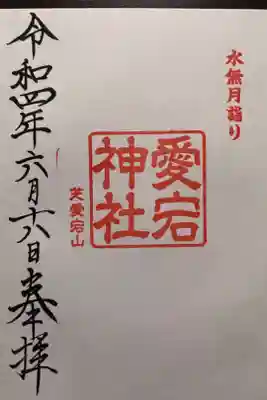 水無月詣り
愛宕
神社
芝愛宕山
令和四年六月六日奉拝